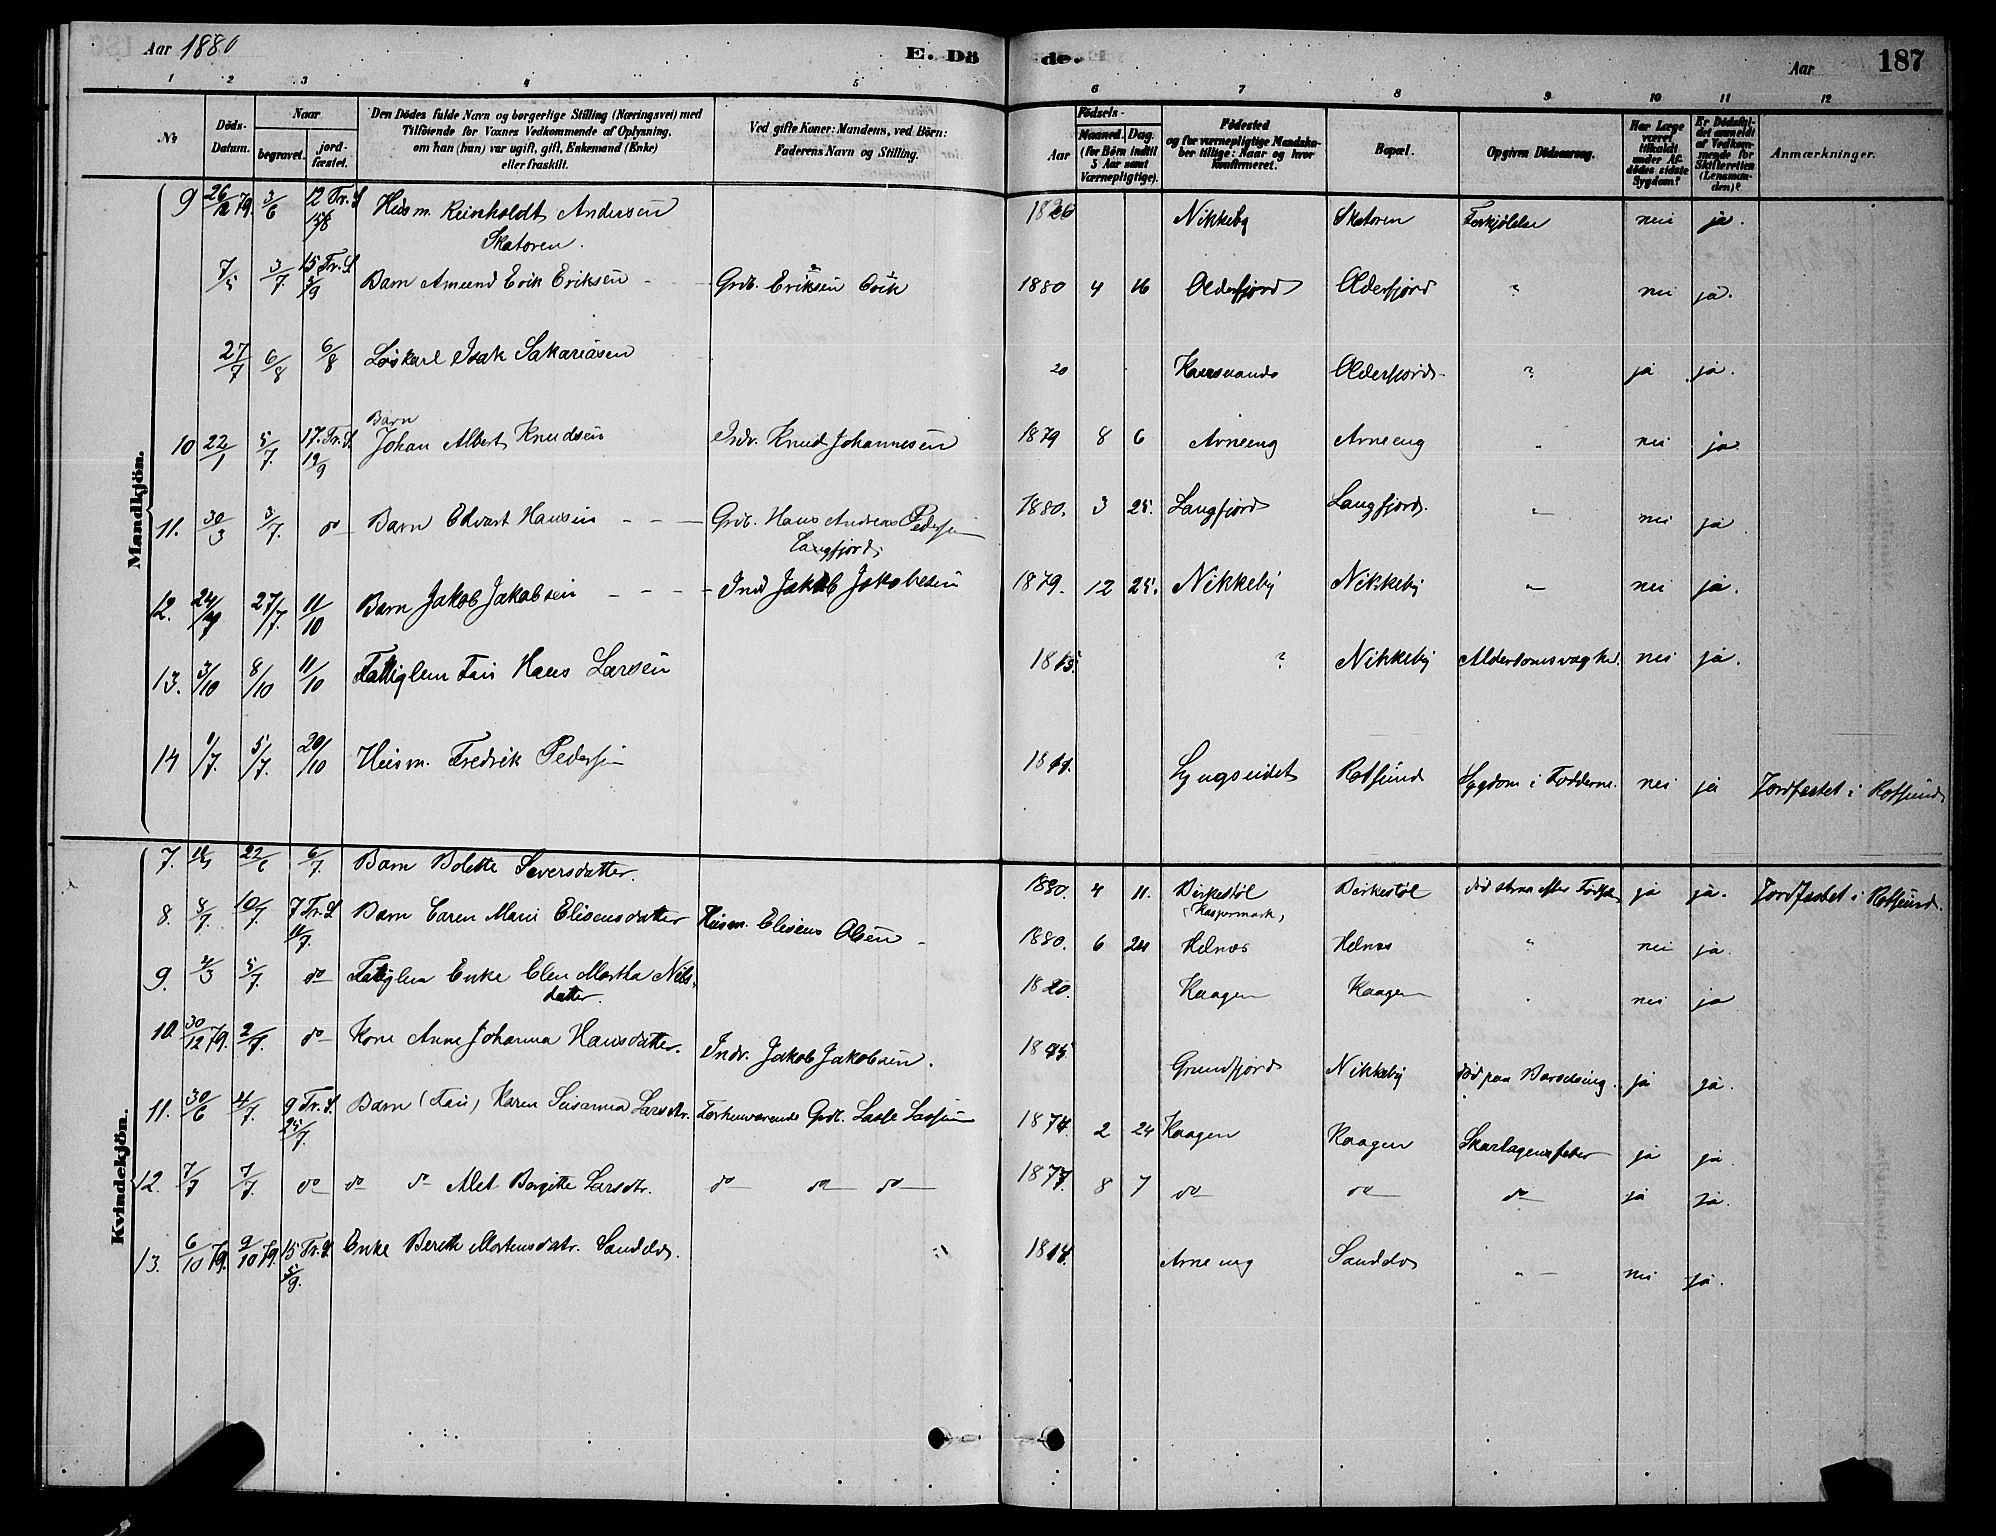 Aar 1880
E. Dö de.
Aar 187
1 2 3 4 5 6 7 8 9 10 11 12
No
Döds-Datum.
Naar
begravet.
jordfæstet.
Den Dödes fulde Navn og borgerlige Stilling (Næringsvei) med
Tilföiende for Voxnes Vedkommende af Oplysning,
om han (hun) var ugift, gift, Enkemand (Enke)
eller fraskilt.
Ved gifte Koner: Mandens, ved Börn:
Faderens Navn og Stilling.
Födsels-
Aar
Maaned. Dag.
(for Börn indtil
5 Aar samt
Værnepligtige).
Födested
og for værnepligtige Mandska-
ber tillige: Naar og hvor
konfirmeret.
Bopæl.
Opgiven Dödsaarsag.
Har Læge
været
tilkaldt
under Af-
dödes sidste
Sygdom?
Er Dödsfal-
det anmeldt
af Vedkom-
mende for
Skifteretten
(Lensman-
den)?
Anmærkninger.
Mandkjön.
9 26/12 79. 3/6 12 Tr. S. Husm. Reinholdt Andersen Skatoren. 1826 Nikkeby Skatoren Forkjølelse nei ja.
7/5 3/7. 15 Tr. S. 5/9 Barn Amund Erik Eriksen Grdb. Eriksen Erik 1880 4 16 Olderfjord Olderfjord ? nei ja.
27/7 6/8 6/8 Løskarl Isak Sakariasen 20 Olderfjord ? ja ja.
10 22/1 5/7. 17. Tr. S. 19/9 Barn Johan Albert Knudsen Indr. Knud Johannesen 1879 8 6 Arneeng Arneeng " nei ja.
11. 30/3 3/7. do Barn Edvart Hansen Grdb. Hans Andreas Pedersen Langfjord 1880. 3 25. Langfjord Langfjord. " nei ja
12. 24/7 27/7. 11/10 Barn Jakob Jakobsen Ind Jakob Jakobsen 1879. 12 25. Nikkeby Nikkeby " nei ja.
13. 3/10 8/10 11/10 Fattiglem Fin Hans Larsen 1815. ? Nikkeby Alderdomssvaghed. nei ja.
14 1/7. 5/7. 20/10 Husm. Fredrik Pedersen 18 Lyngseidet Rotsund Sygdom i Fødderne. nei ja Jordfæstet i Rotsund
Kvindekjön.
7. 22/6 6/7. Barn Bolette Seversdatter. 1880. 4 11. Birkestøl (Kaspermark) Birkestøl død strax efter Fødsel ja ja. Jordfæstet i Rotsund.
8. 8/7. 10/7. 7 Tr. S. 11/7. Barn Caren Marie Elisensdatter Husm. Eliseus Olsen 1880. 6 24 Helnes Helnes " nei ja.
9. 4/3 5/7. do Fattiglem Enke Elen Martha Nilsdatter. 1820. Kaagen Kaagen " nei ja
10. 30/12 79. 2/7. do Kone Anne Johanna Hansdatter. Indr. Jakob Jakobsen. 1845 Grundfjord Nikkeby død paa Barselseng. ja ja.
11. 30/6 4/7. 9 Tr. S. 25/7. Barn (Fin) Karen Susanna Larsdtr. Forhenværende Grdb. 1874. 2 24 Kaagen Kaagen Skarlagensfeber ja ja.
12. 7/7 7/7. do do do Alet Bergitte Larsdtr. do do do 1877. 8 7 do do do ja ja.
13. 6/10 79. 9/10 79. 15 Tr. S. 5/9. Enke Berethe Mortensdatr. Sandelv. 1814. Arneeng Sandelv " nei ja.